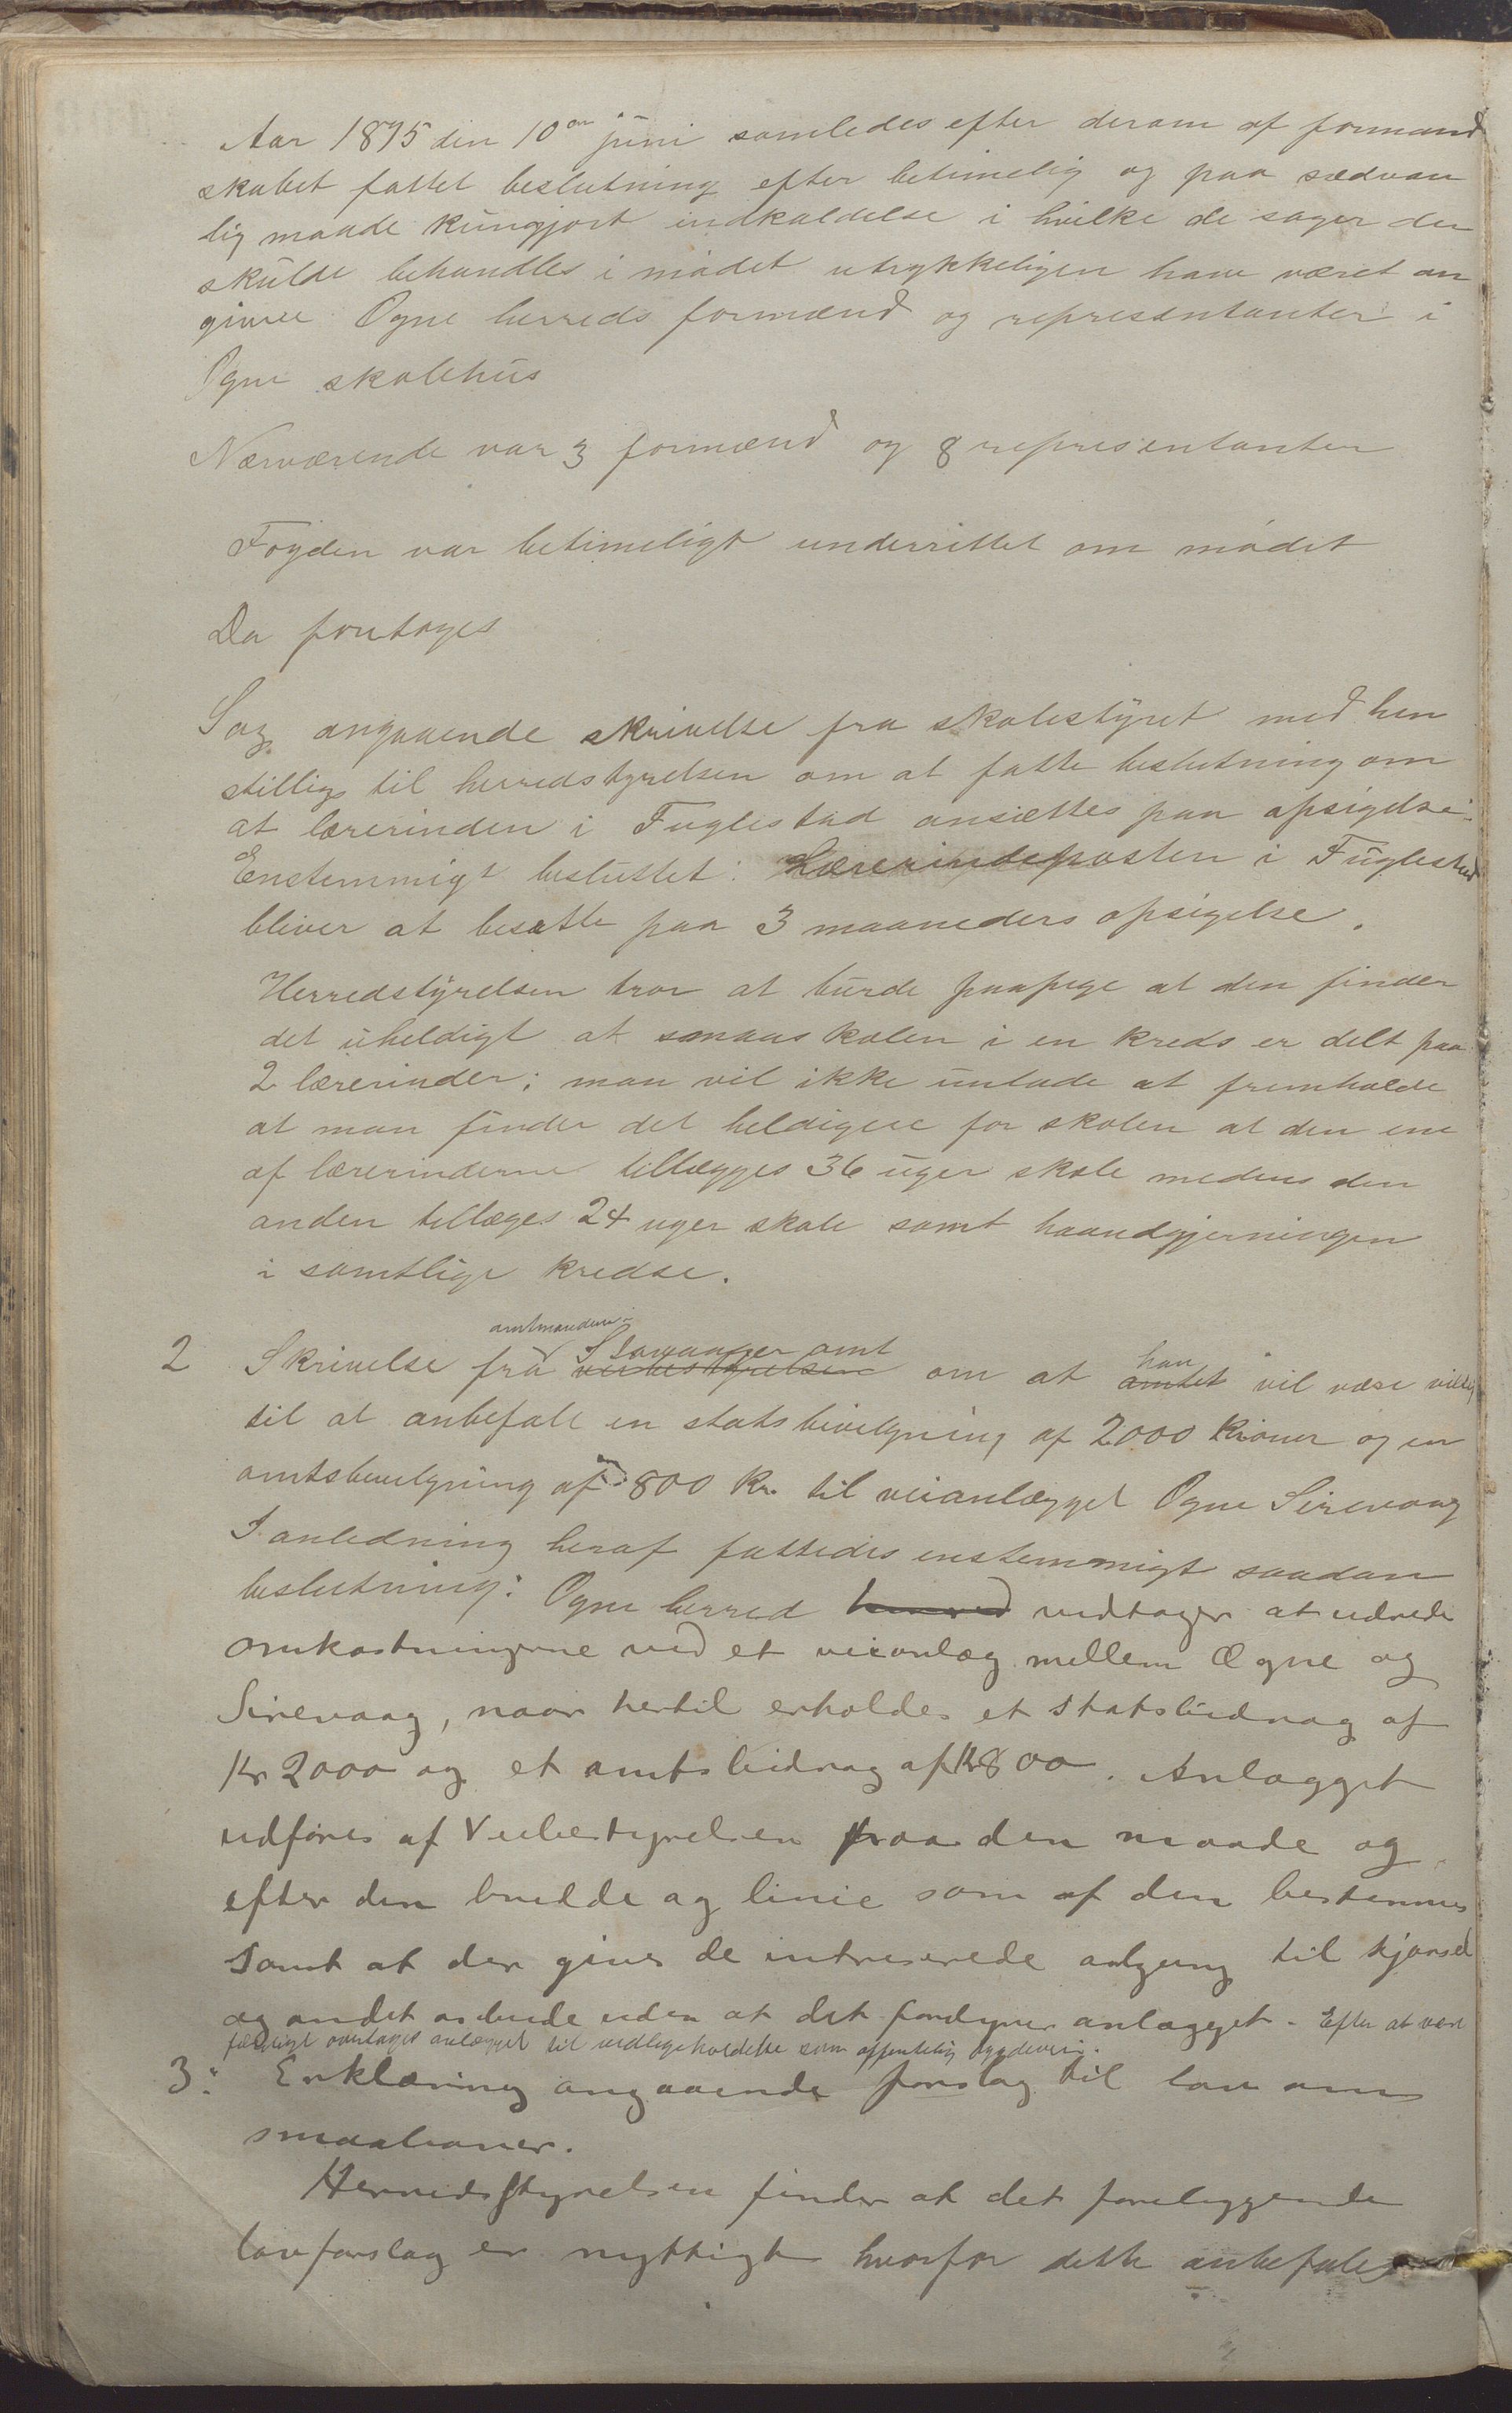 Aar 1895 den 10en juni samledes efter derom af formand
skabet fattet beslutning efter betimelig og paa sædvan
lig maade kungjort indkaldelse i hvilke de sager der
skulde behandles i mødet utrykkeligen have været an
givne Ogne herreds formænd og repræsentanter i
Ogne skolehus
Nærværende var 3 formænd og 8 repræsentanter
Fogden var betimeligt underrettet om mødet
Da foretoges
Sag angaaende skrivelse fra skolestyret med hen
stillig til herredstyrelsen om at fatte beslutning om
at lærerinden i Fuglestad ansættes paa opsigelse:
Enstemmigt besluttet: Lærerindeposten i Fuglestad
bliver at besætte paa 3 maaneders opsigelse.
Herredstyrelsen tror at burde paapege at den finder
det uheldigt at smaaskolen i en kreds er delt paa
2 lærerinder; man vil ikke unlade at fremholde
at man finder det heldigere for skolen at den ene
af lærerinderne tillægges 36 uger skole medens den
anden tillæges 24 uger skole samt haandgjerningen
i samtlige kredse.
2 Skrivelse fra amtmanden i Stavanger amt veibestyrelsen om at han amtet vil være villig
til at anbefale en statsbivilgning af 2000 kroner og en
amtsbevilgning af 800 Kr. til veianlægget Ogne Sirevaag
I anledning heraf fattedes enstemmigt saadan
beslutning: Ogne herred herred vedtager at udrede
omkostningerne ved et veianlæg mellem Ogne og
Sirevaag, naar hertil erholdes et statsbidrag af
Kr 2000 og et amtsbidrag af Kr 800. Anlægget
udføres af Veibestyrelsen paa den maade og
efter den bredde og linie som af den bestemmes
samt at der gives de intreserede adgang til kjørsel
og andet arbeide uden at det fordyrer anlægget. Efter at være
færdigt overtages anlægget til vedligeholdelse som offentlig bygdevei.
3: Erklæring angaaende forslag til lov om
smaabaner.
Herredsstyrelsen finder at det foreliggende
lovforslag er nyttigt hvorfor dette anbefales